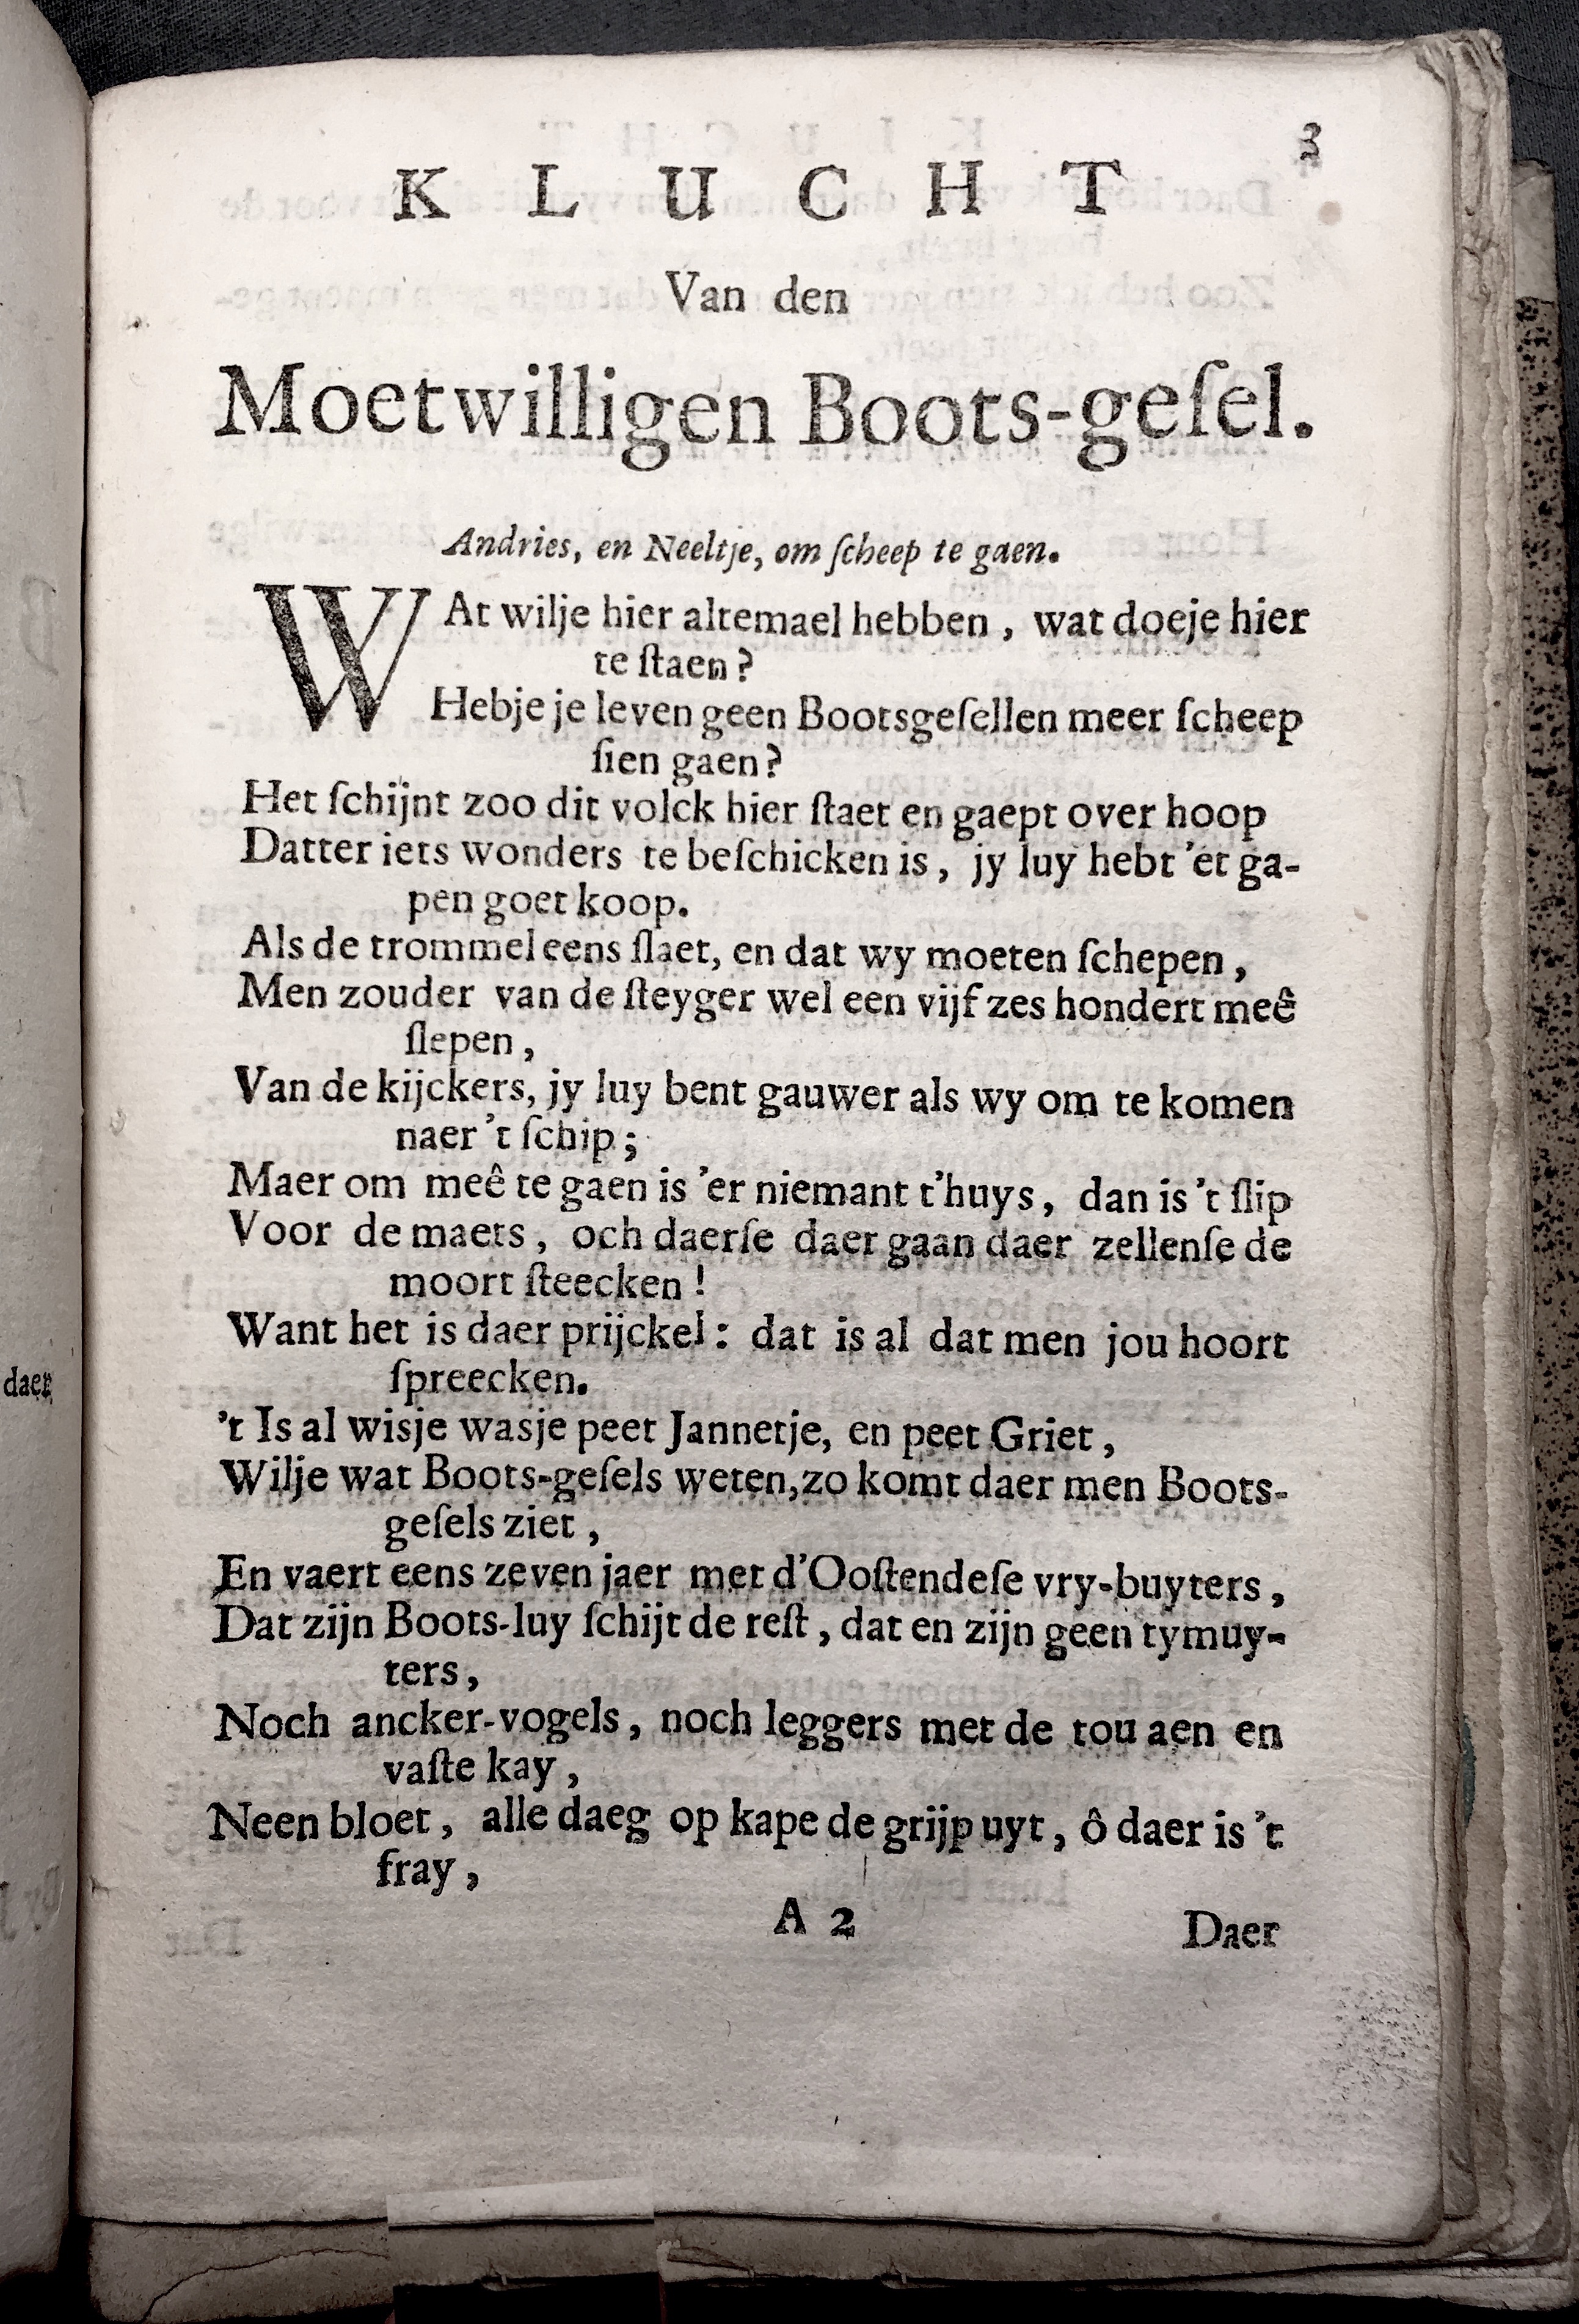 3
K L U C H T
Van den
Moetwilligen Boots-geſel.
Andries, en Neeltje, om ſcheep te gaen.
WAt wilje hier altemael hebben, wat doeje hier
te ſtaen?
Hebje je leven geen Bootsgeſellen meer ſcheep
ſien gaen?
Het ſchijnt zoo dit volck hier ſtaet en gaept over hoop
Datter iets wonders te beſchicken is, jy luy hebt 'et ga-
pen goet koop.
Als de trommel eens ſlaet, en dat wy moeten ſchepen,
Men zouder van de ſteyger wel een vijf zes hondert meê
ſlepen,
Van de kijckers, jy luy bent gauwer als wy om te komen
naer 't ſchip;
Maer om meê te gaen is 'er niemant t'huys, dan is 't ſlip
Voor de maets, och daerſe daer gaan daer zellenſe de
moort ſteecken!
Want het is daer prijckel: dat is al dat men jou hoort
ſpreecken.
't Is al wisje wasje peet Jannetje, en peet Griet,
Wilje wat Boots-geſels weten, zo komt daer men Boots-
geſels ziet,
En vaert eens zeven jaer met d'Ooſtendeſe vry-buyters,
Dat zijn Boots-luy ſchijt de reſt, dat en zijn geen tymuy-
ters,
Noch ancker-vogels, noch leggers met de tou aen en
vaſte kay,
Neen bloet, alle daeg op kape de grijp uyt, ô daer is 't
fray,
A 2
Daer
daer